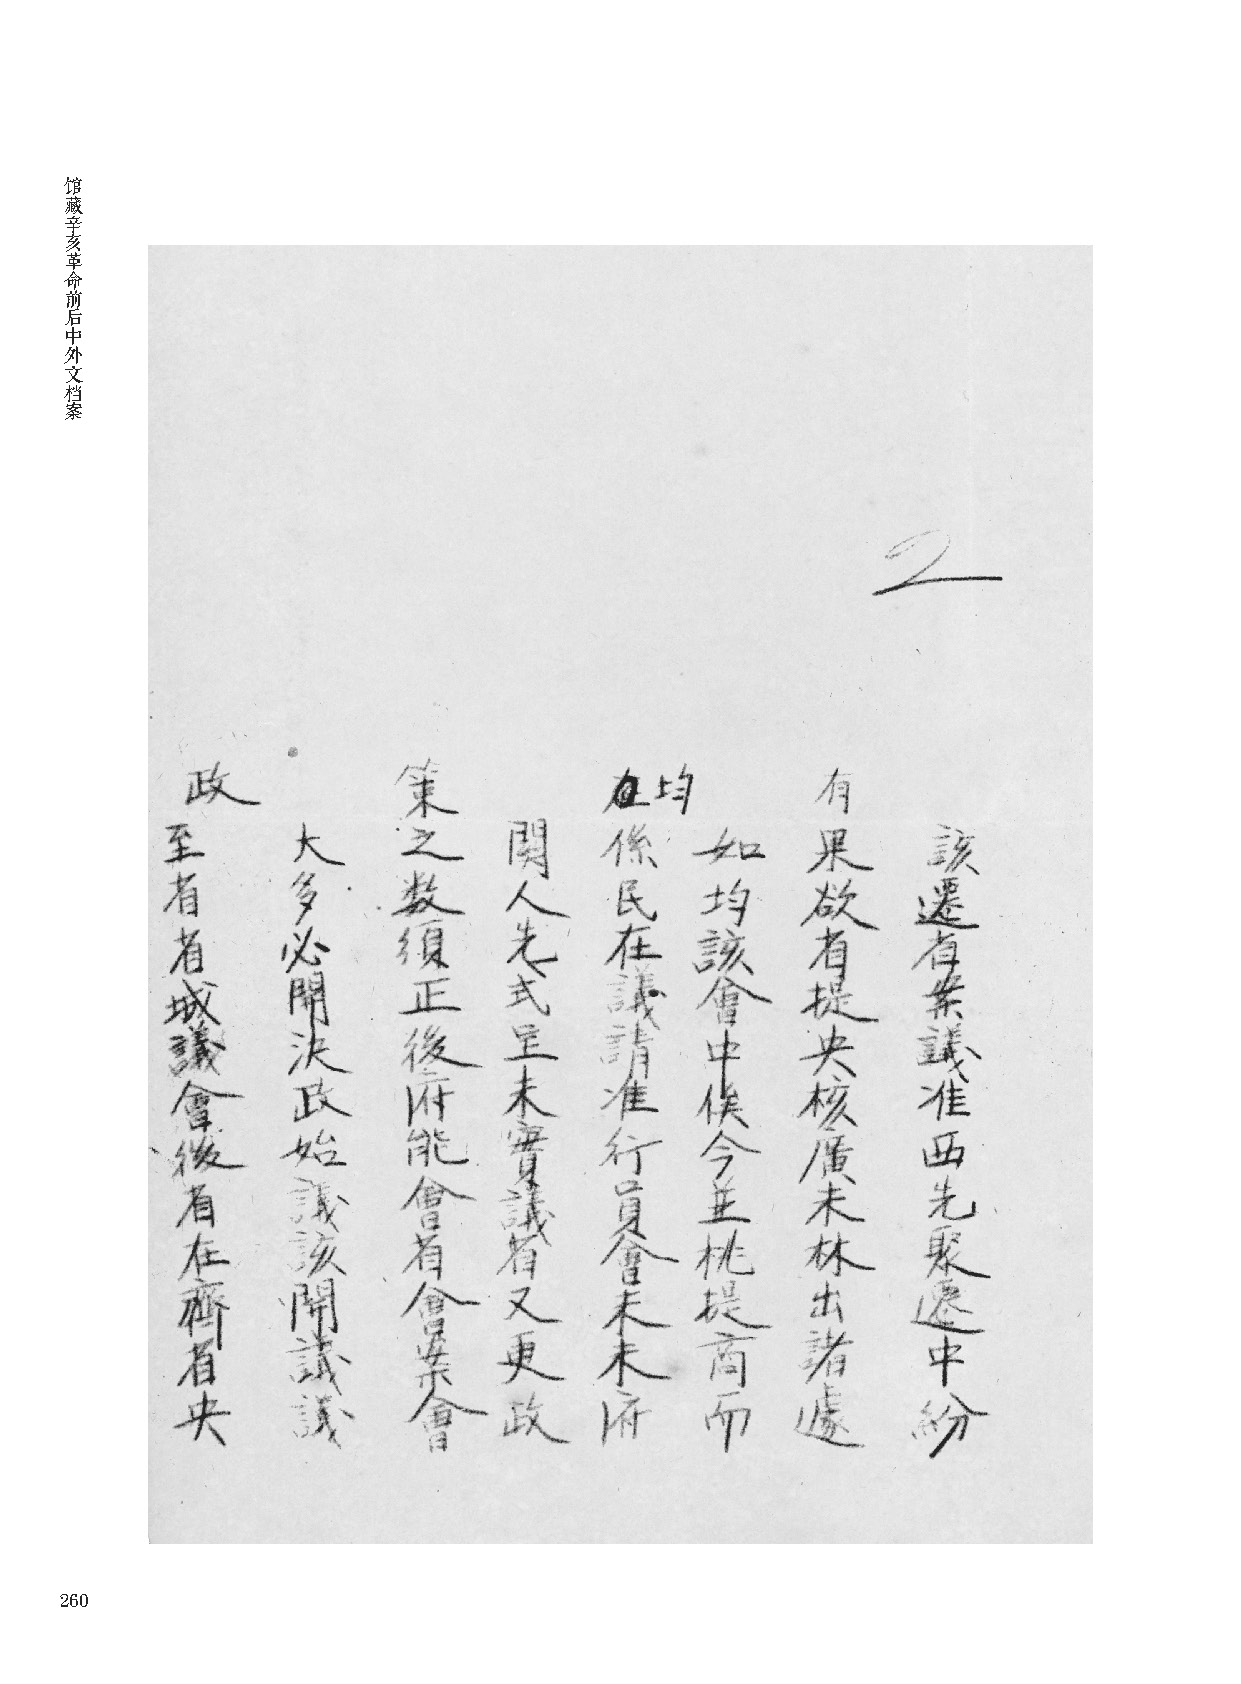 馆藏辛亥革命前后中外文档案
2
該遷省案議准西先聚遷中紛
有果欲省提央核廣未林出諸遽
如均該會中俟今並桃提商而
均
在係民在議請准行員會未未府
閱人先式呈未實議省又更政
策之数須正後府能會省會案會
大多必開決政始議該開議議
政至省省城議會後省在齊省央
260